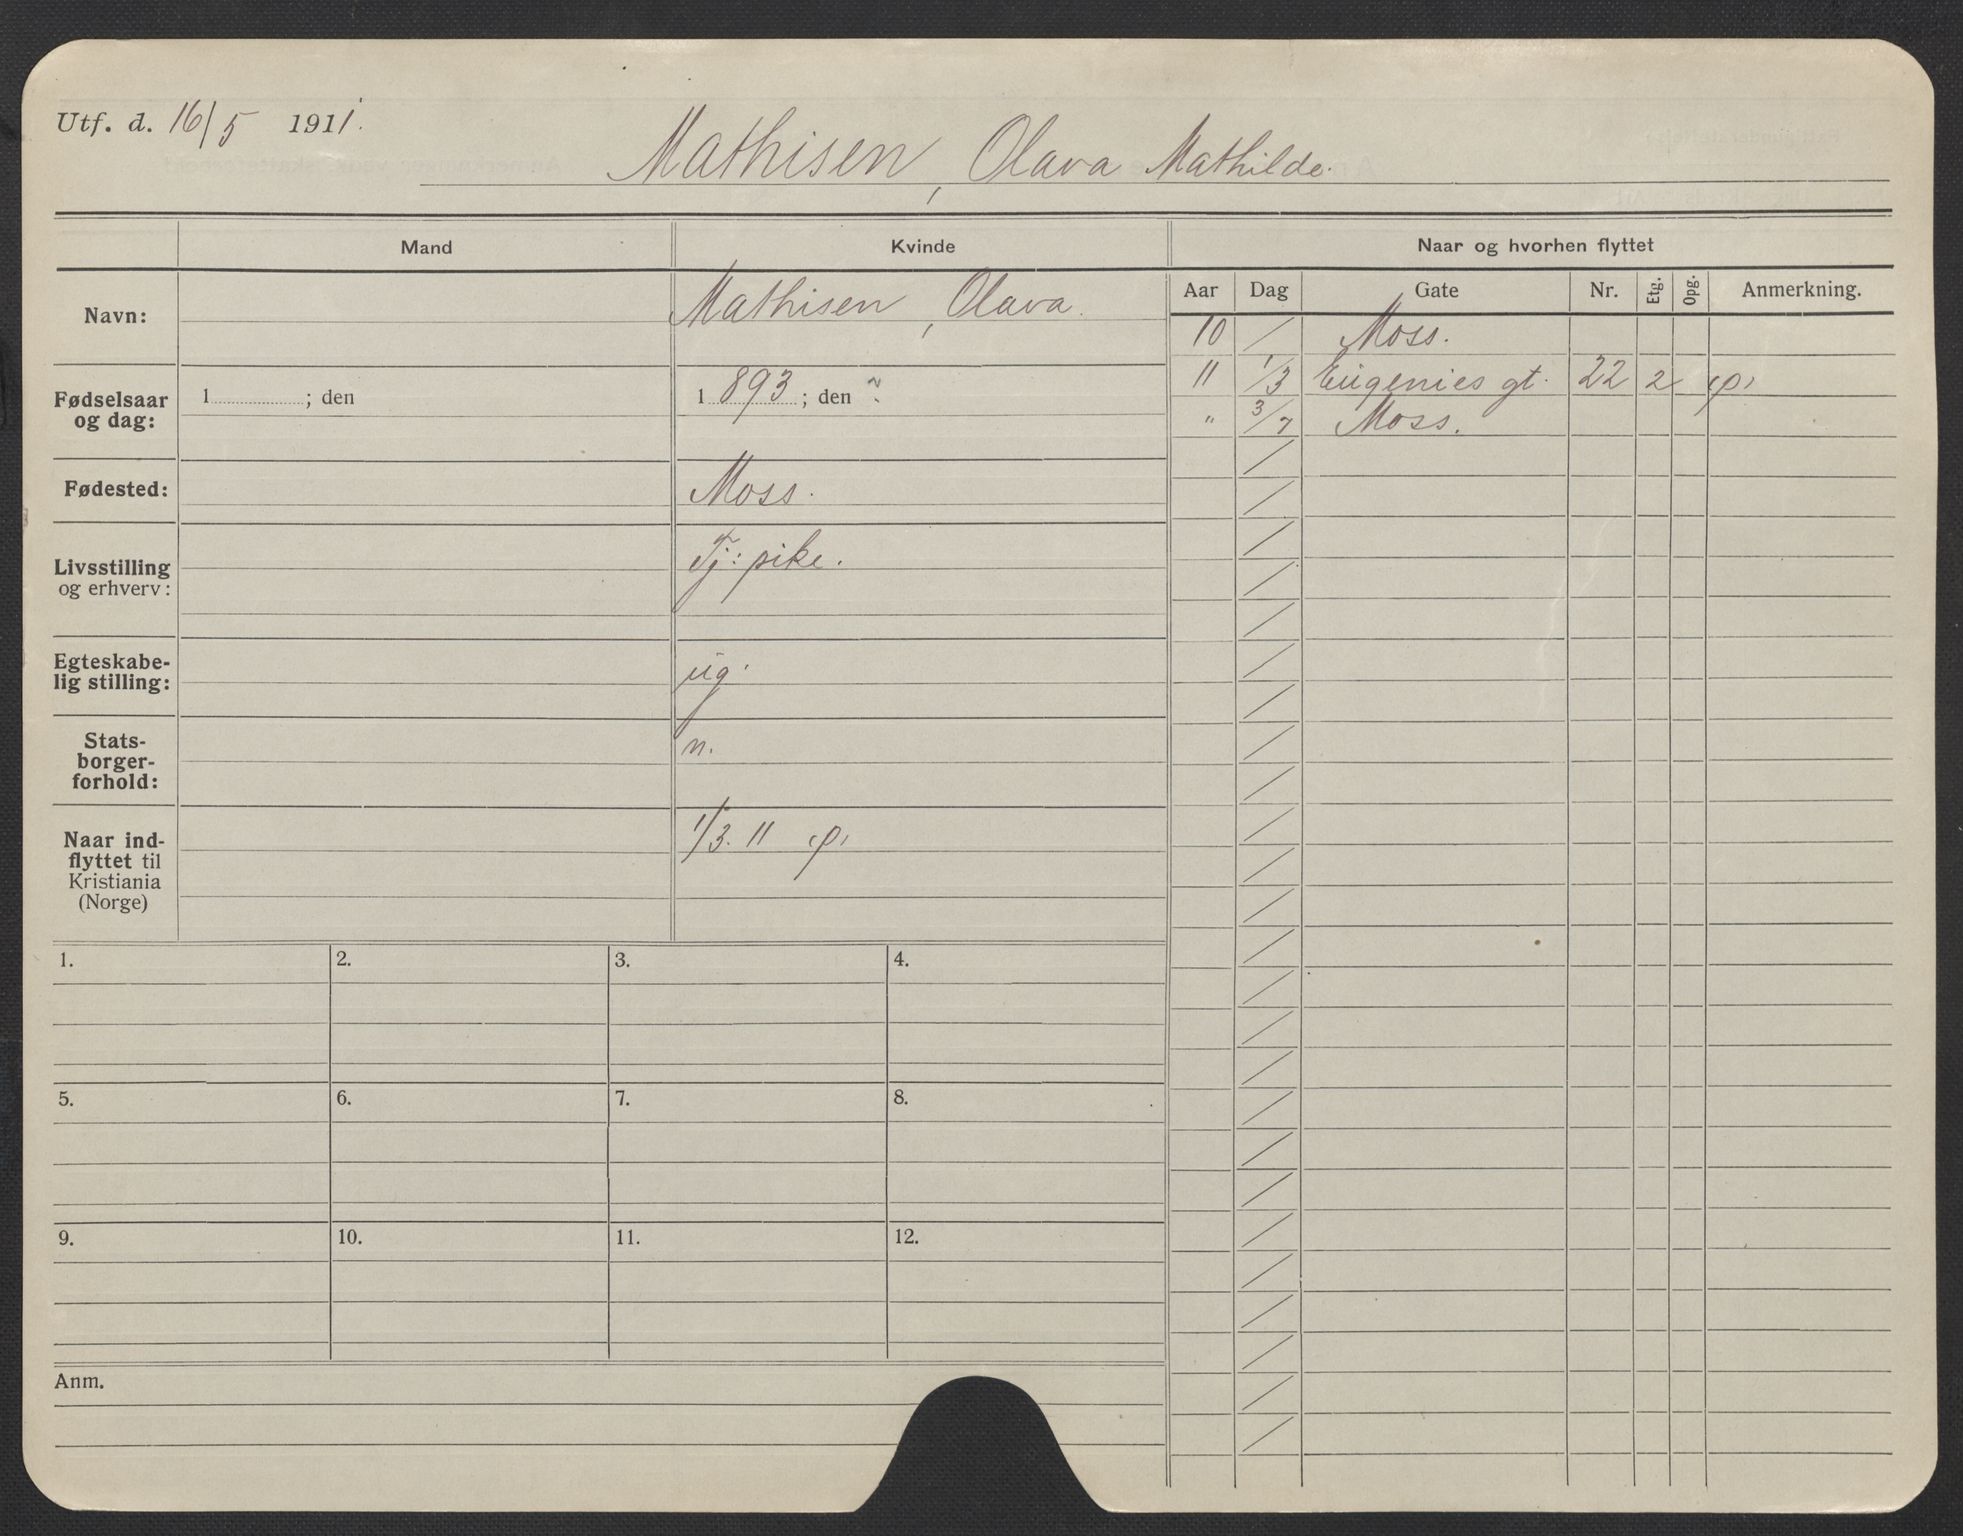 Utf. d. 16/5 1911.
Mathisen, Olava Mathilde.
Mand Kvinde Naar og hvorhen flyttet
Aar Dag Gate Nr. Etg. Opg. Anmerkning.
Navn: Mathisen, Olava.
10 / Moss.
11 1/3 Eugenies gt. 22 2
" 3/7 Moss.
Fødselsaar
og dag: 1 ; den 1893 ; den
Fødested: Moss.
Livsstilling
og erhverv: Tj: pike.
Egteskabe-
lig stilling: ug.
Stats-
borger-
forhold: n.
Naar ind-
flyttet til
Kristiania
(Norge) 1/3. 11
1. 2. 3. 4.
5. 6. 7. 8.
9. 10. 11. 12.
Anm.